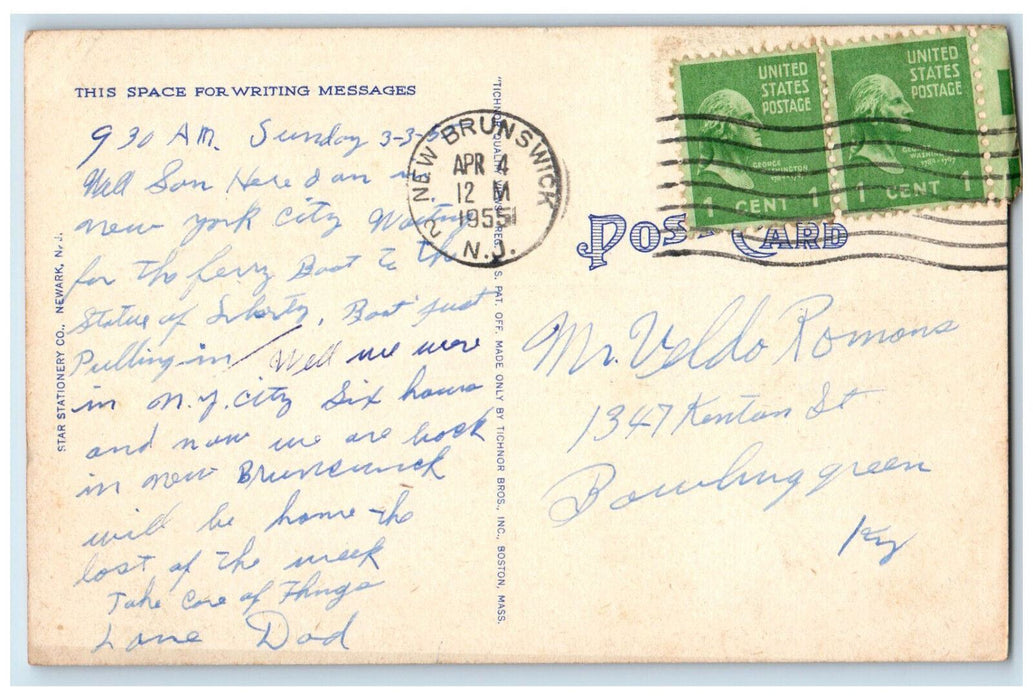 THIS SPACE FOR WRITING MESSAGES
9 30 AM. Sunday 3-3-5
Well Son Here I am in
new york City Waiting
for the ferry Boat to the
Statue of Liberty, Boat just
Pulling in / Well we were
in N.Y. City Six hours
and now we are back
in new Brunswick
will be home the
last of the week
Take Care of Things
Love Dad
STAR STATIONERY CO., NEWARK, N. J.
"TICHNOR QUALITY REG. U. S. PAT. OFF. MADE ONLY BY TICHNOR BROS., INC., BOSTON, MASS.
NEW BRUNSWICK
2
APR 4
12 M
1955
N.J.
UNITED
STATES
POSTAGE
GEORGE
WASHINGTON
1789-1797
1 CENT 1
UNITED
STATES
POSTAGE
GEORGE
WASHINGTON
1789-1797
1 CENT 1
POST CARD
Mr. Veldo Romans
1347 Kenton St
Bowling green
Ky